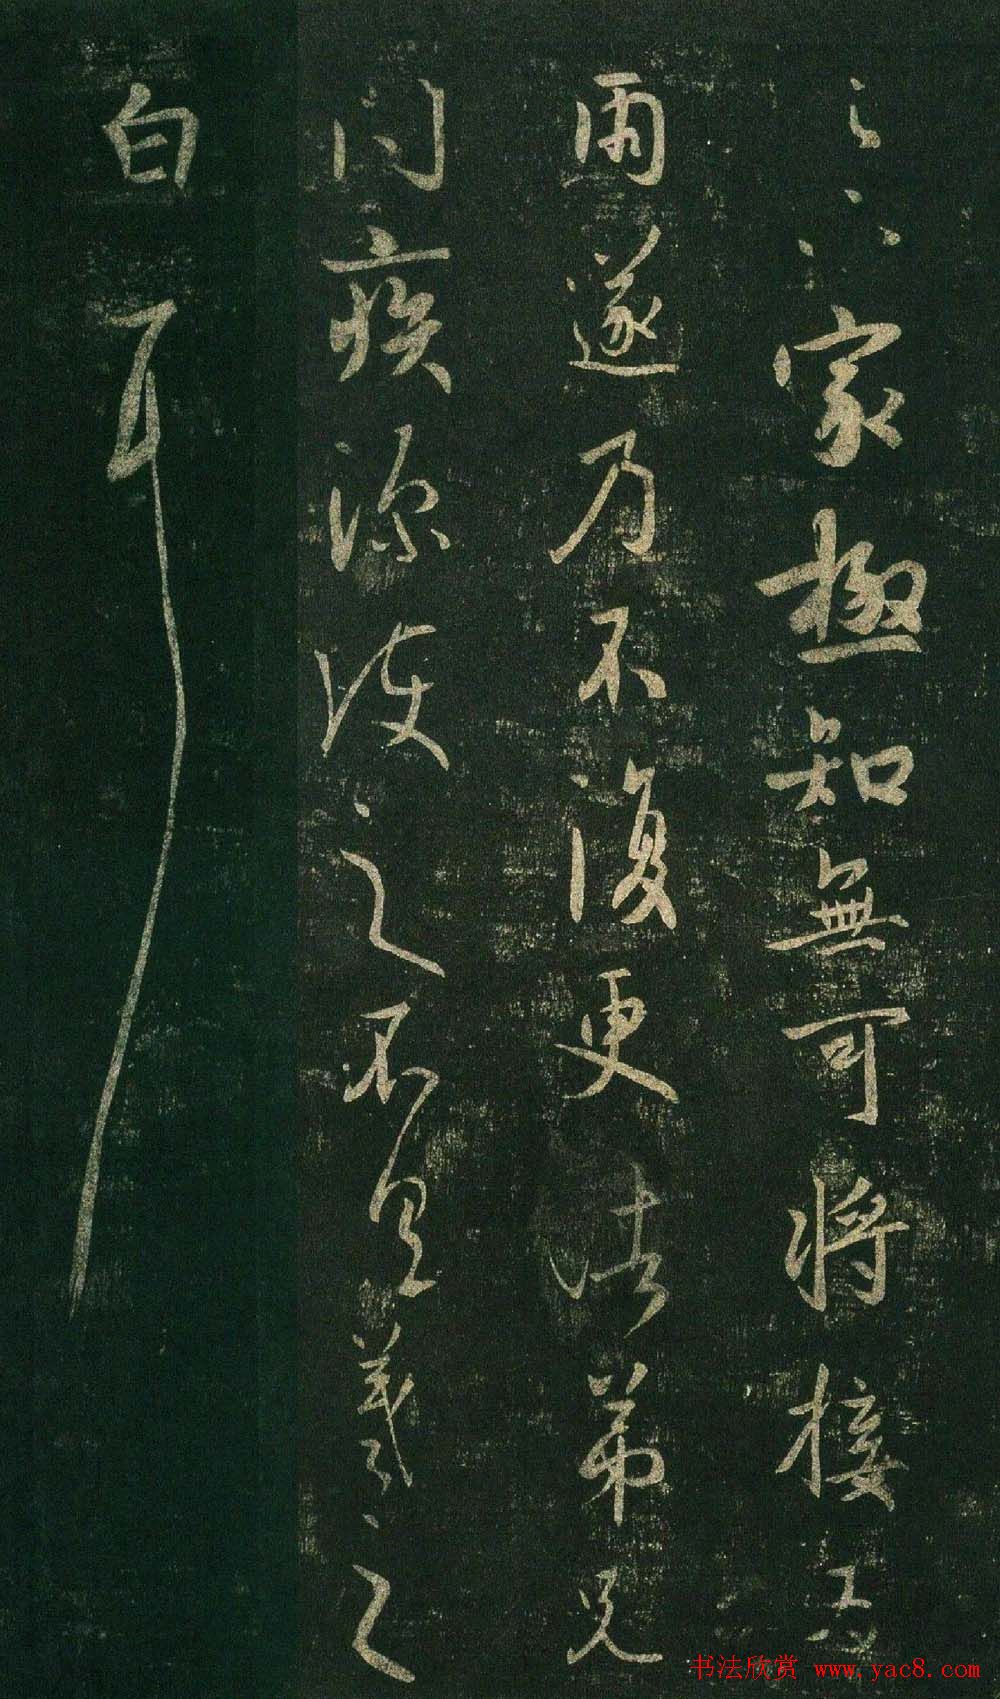 家極知無可將接為
雨遂乃不復更諸弟兄
問疾深護之不具羲之
白耳
书法欣赏 www.yac8.com